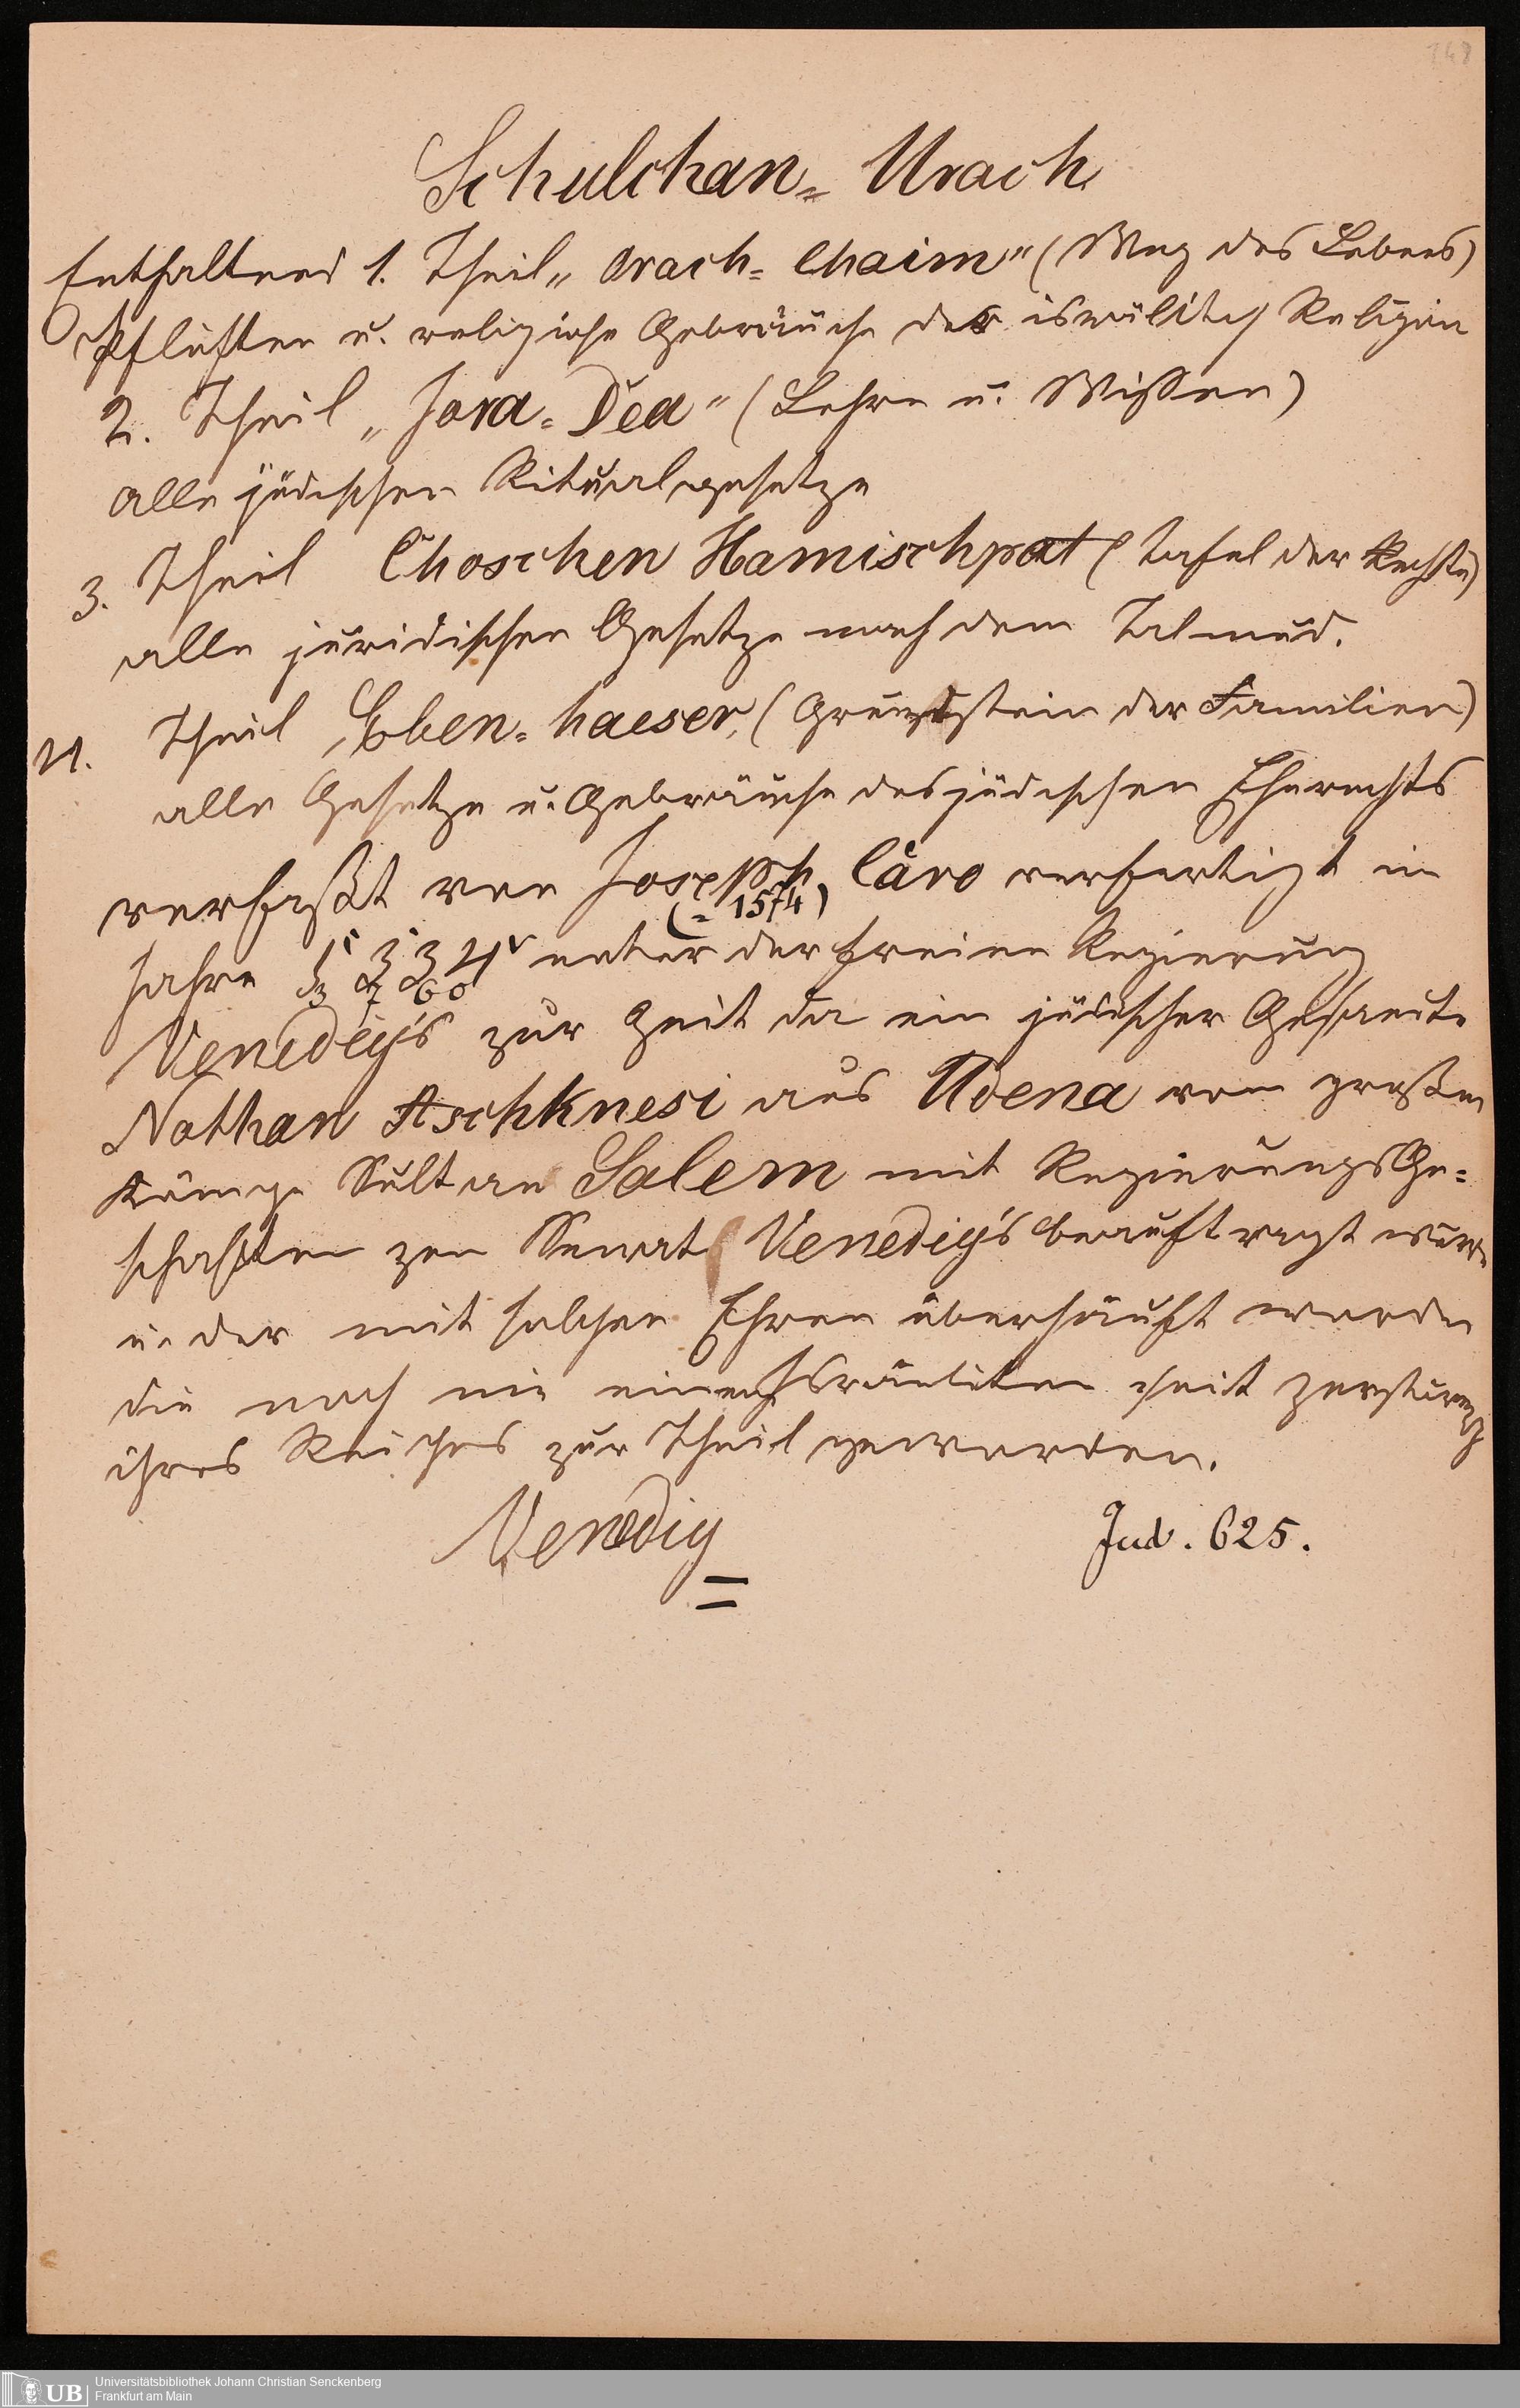 148
Schulchan= Urach
Enthaltend 1. Theil „Orach= Chaim" (Weg des Lebens)
Pflichten u. religiöse Gebräuche der israälitisch Religion
2. Theil „Jora=Dea" (Lehre u. Wissen)
alle jüdischen Ritualgesetze
3. Theil Choschen Hamischpat (Tafel der Rechte)
alle juridischen Gesetze nach dem Talmud.
4. Theil „Eben=haeser„ (Grundstein der Familien)
alle Gesetze u. Gebräuche des jüdischen Eherechts
verfaßt von Joseph Caro verfertigt in
(=1574)
Jahre 5334 unter der freien Regierung
3760
Venedig's zur Zeit da ein jüdischer Gesandte
Nathan Aschknesi aus Udena vom großen
Könige Sultan Salem mit Regierungsge=
schäften zen Senat Venedig's beauftragt wurde
u. der mit solchen Ehren überhäuft worden
die noch nie einem Israäliten seit Zerstörung
ihres Reiches zur Theil geworden.
Venedig
Jud. 625.
UB
Universitätsbibliothek Johann Christian Senckenberg
Frankfurt am Main